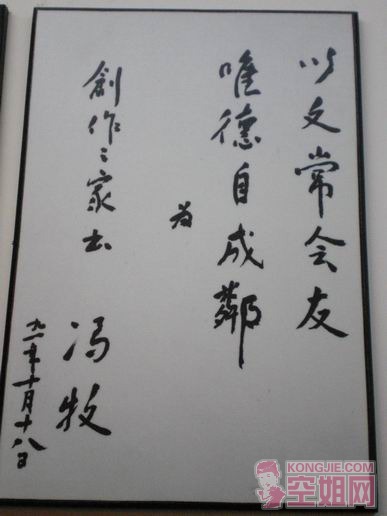 以文常会友
唯德自成鄰
为
創作之家书
冯牧
九一年十月十八日
KONGJIE.COM
空姐网